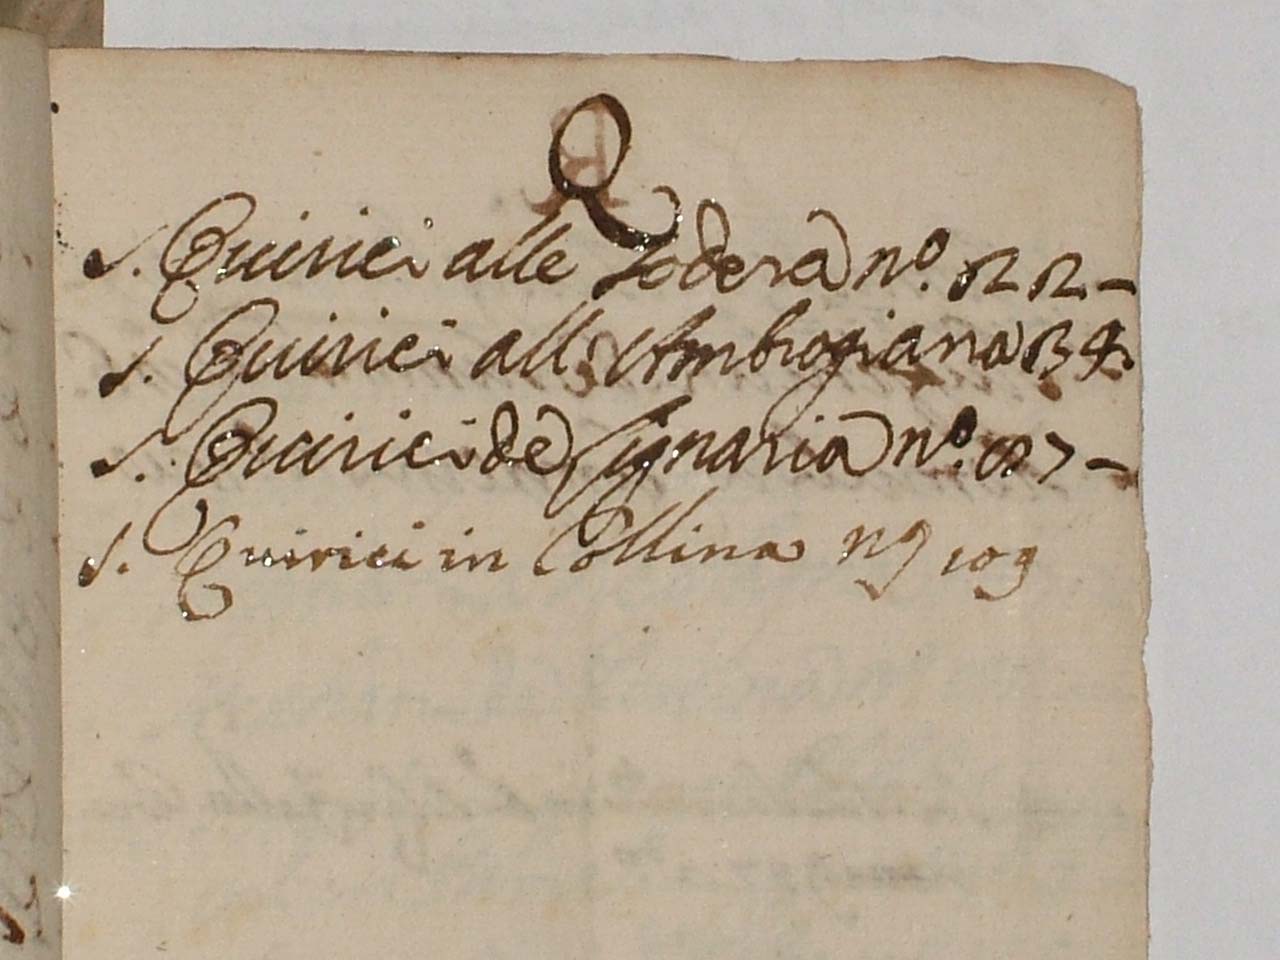 Q
S. Quirici alle Sodera nº. 22-
S. Quirici all Ambrogiana 34.
S. Quirici de Signaria nº. 87-
S. Quirici in Collina nº 109